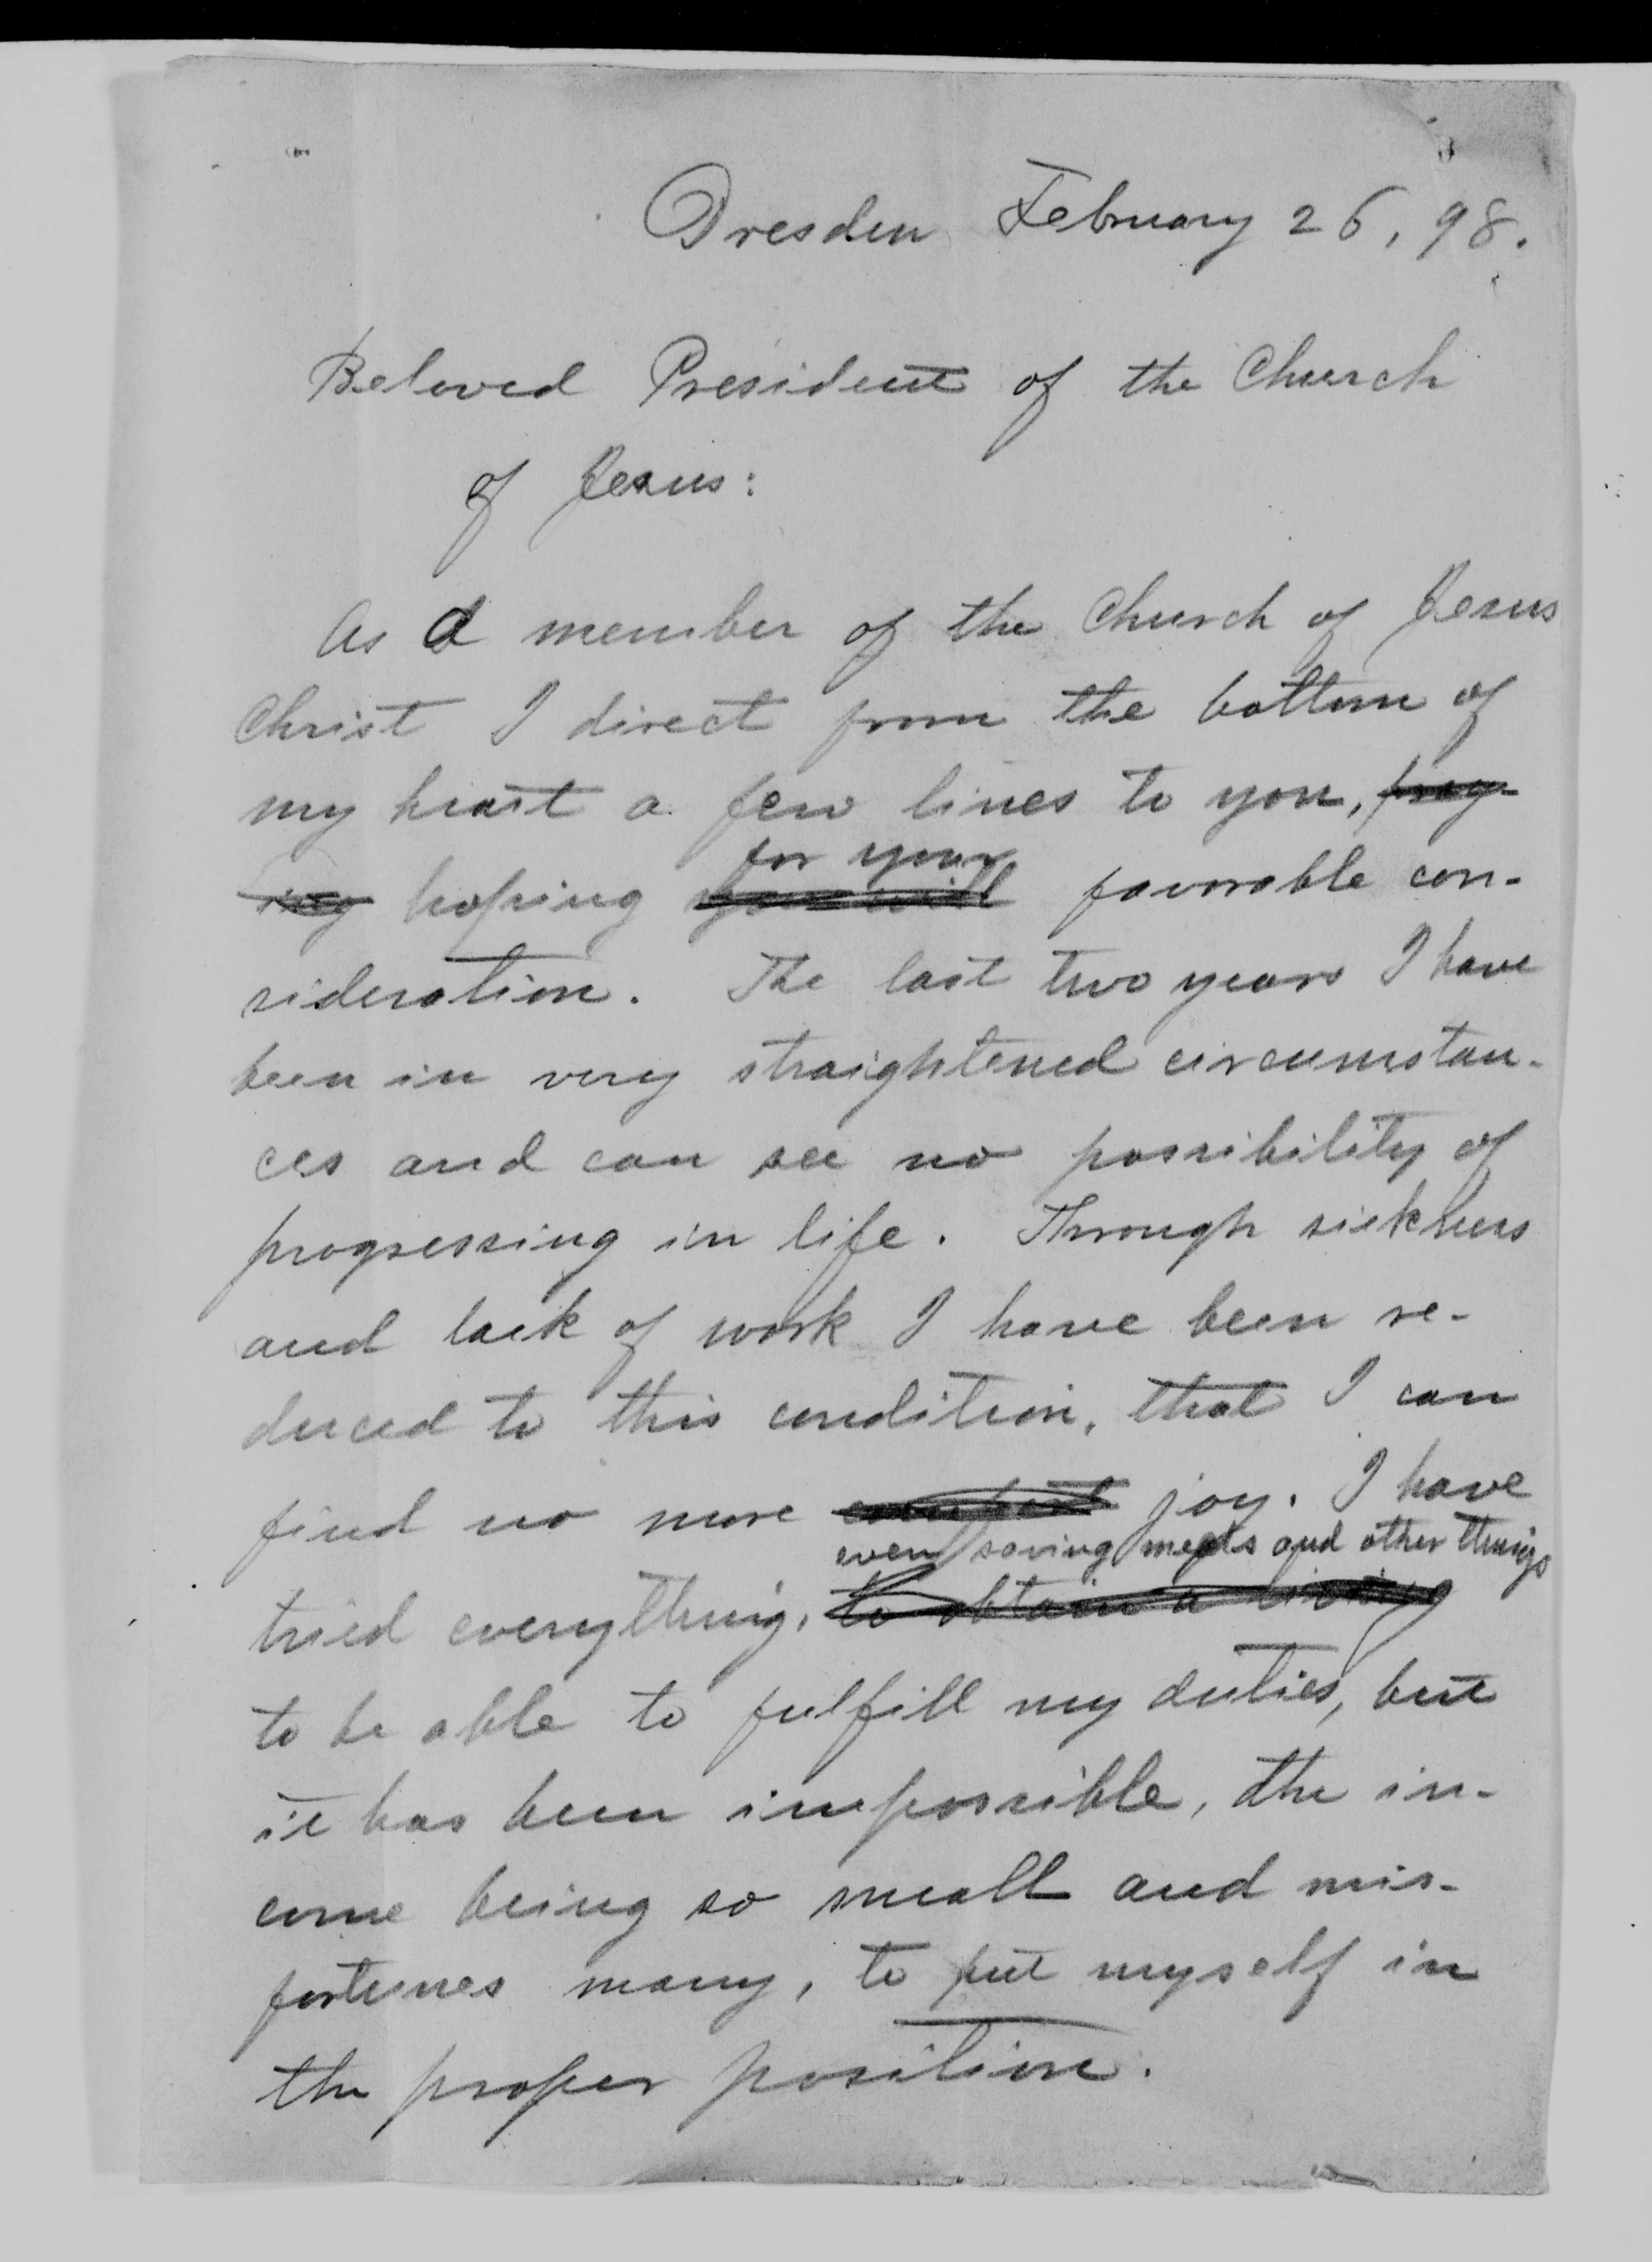 Dresden February 26, 98.
Beloved President of the Church
of Jesus:
As a member of the Church of Jesus
Christ I direct from the bottom of
my heart a few lines to you, pray-
ing hoping you will for your favorable con-
sideration. The last two years I have
been in very straightened circumstan-
ces and can see no possibility of
progressing in life. Through sickness
and lack of work I have been re-
duced to this condition, that I can
find no more comfort joy. I have
even saving meals and other things
tried everything, to obtain a living
to be able to fulfill my duties, but
it has been impossible, the in-
come being so small and mis-
fortunes many, to put myself in
the proper position.